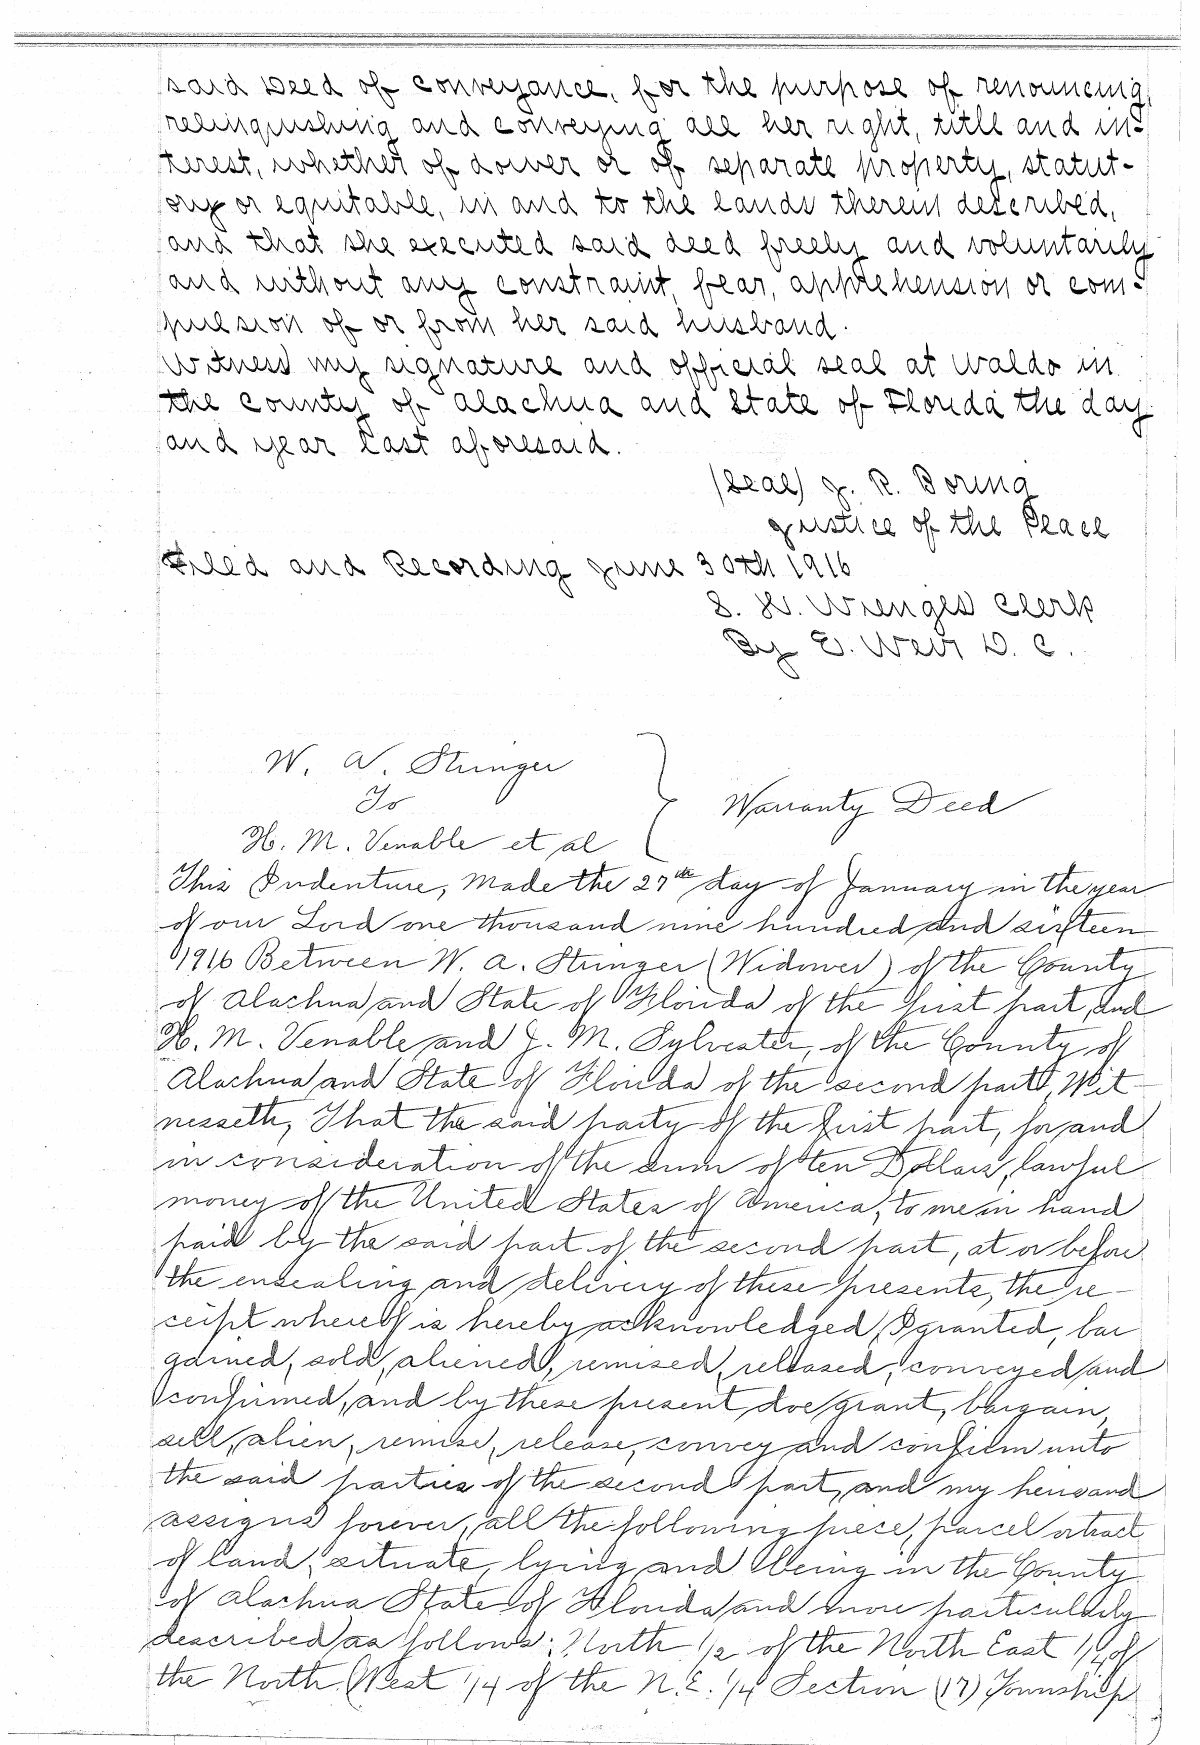 said Deed of conveyance, for the purpose of renouncing,
relinquishing and conveying all her right, title and in-
terest, whether of dower or of separate property, statut-
ory or equitable, in and to the lands therein described,
and that she executed said deed freely and voluntarily
and without any constraint, fear, apprehension or com-
pulsion of or from her said husband.
Witness my signature and official seal at Waldo in
the county of Alachua and State of Florida the day
and year last aforesaid.
(Seal) J. R. Boring
Justice of the Peace
Filed and Recording June 30th 1916
S. H. Wienges Clerk
By E. Weir D. C.
W. A. Stringer
To
Warranty Deed
H. M. Venable et al
This Indenture, Made the 27th day of January in the year
of our Lord one thousand nine hundred and sixteen
1916 Between W. A. Stringer (Widower) of the County
of Alachua and State of Florida of the first part, and
H. M. Venable and J. M. Sylvester, of the County of
Alachua and State of Florida of the second part, Wit
nesseth, That the said party of the first part, for and
in consideration of the sum of ten Dollars, lawful
money of the United States of America, to me in hand
paid by the said part of the second part, at or before
the ensealing and delivery of these presents, the re-
ceipt whereof is hereby acknowledged, I granted, bar
gained, sold, aliened, remised, released, conveyed and
confirmed, and by these present doe grant, bargain,
sell, alien, remise, release, convey and confirm unto
the said parties of the second part, and my heirs and
assigns forever, all the following piece, parcel or tract
of land, situate, lying and being in the County
of Alachua State of Florida and more particularly
described as follows: North 1/2 of the North East 1/4 of
the North West 1/4 of the N.E. 1/4 Section (17) Township